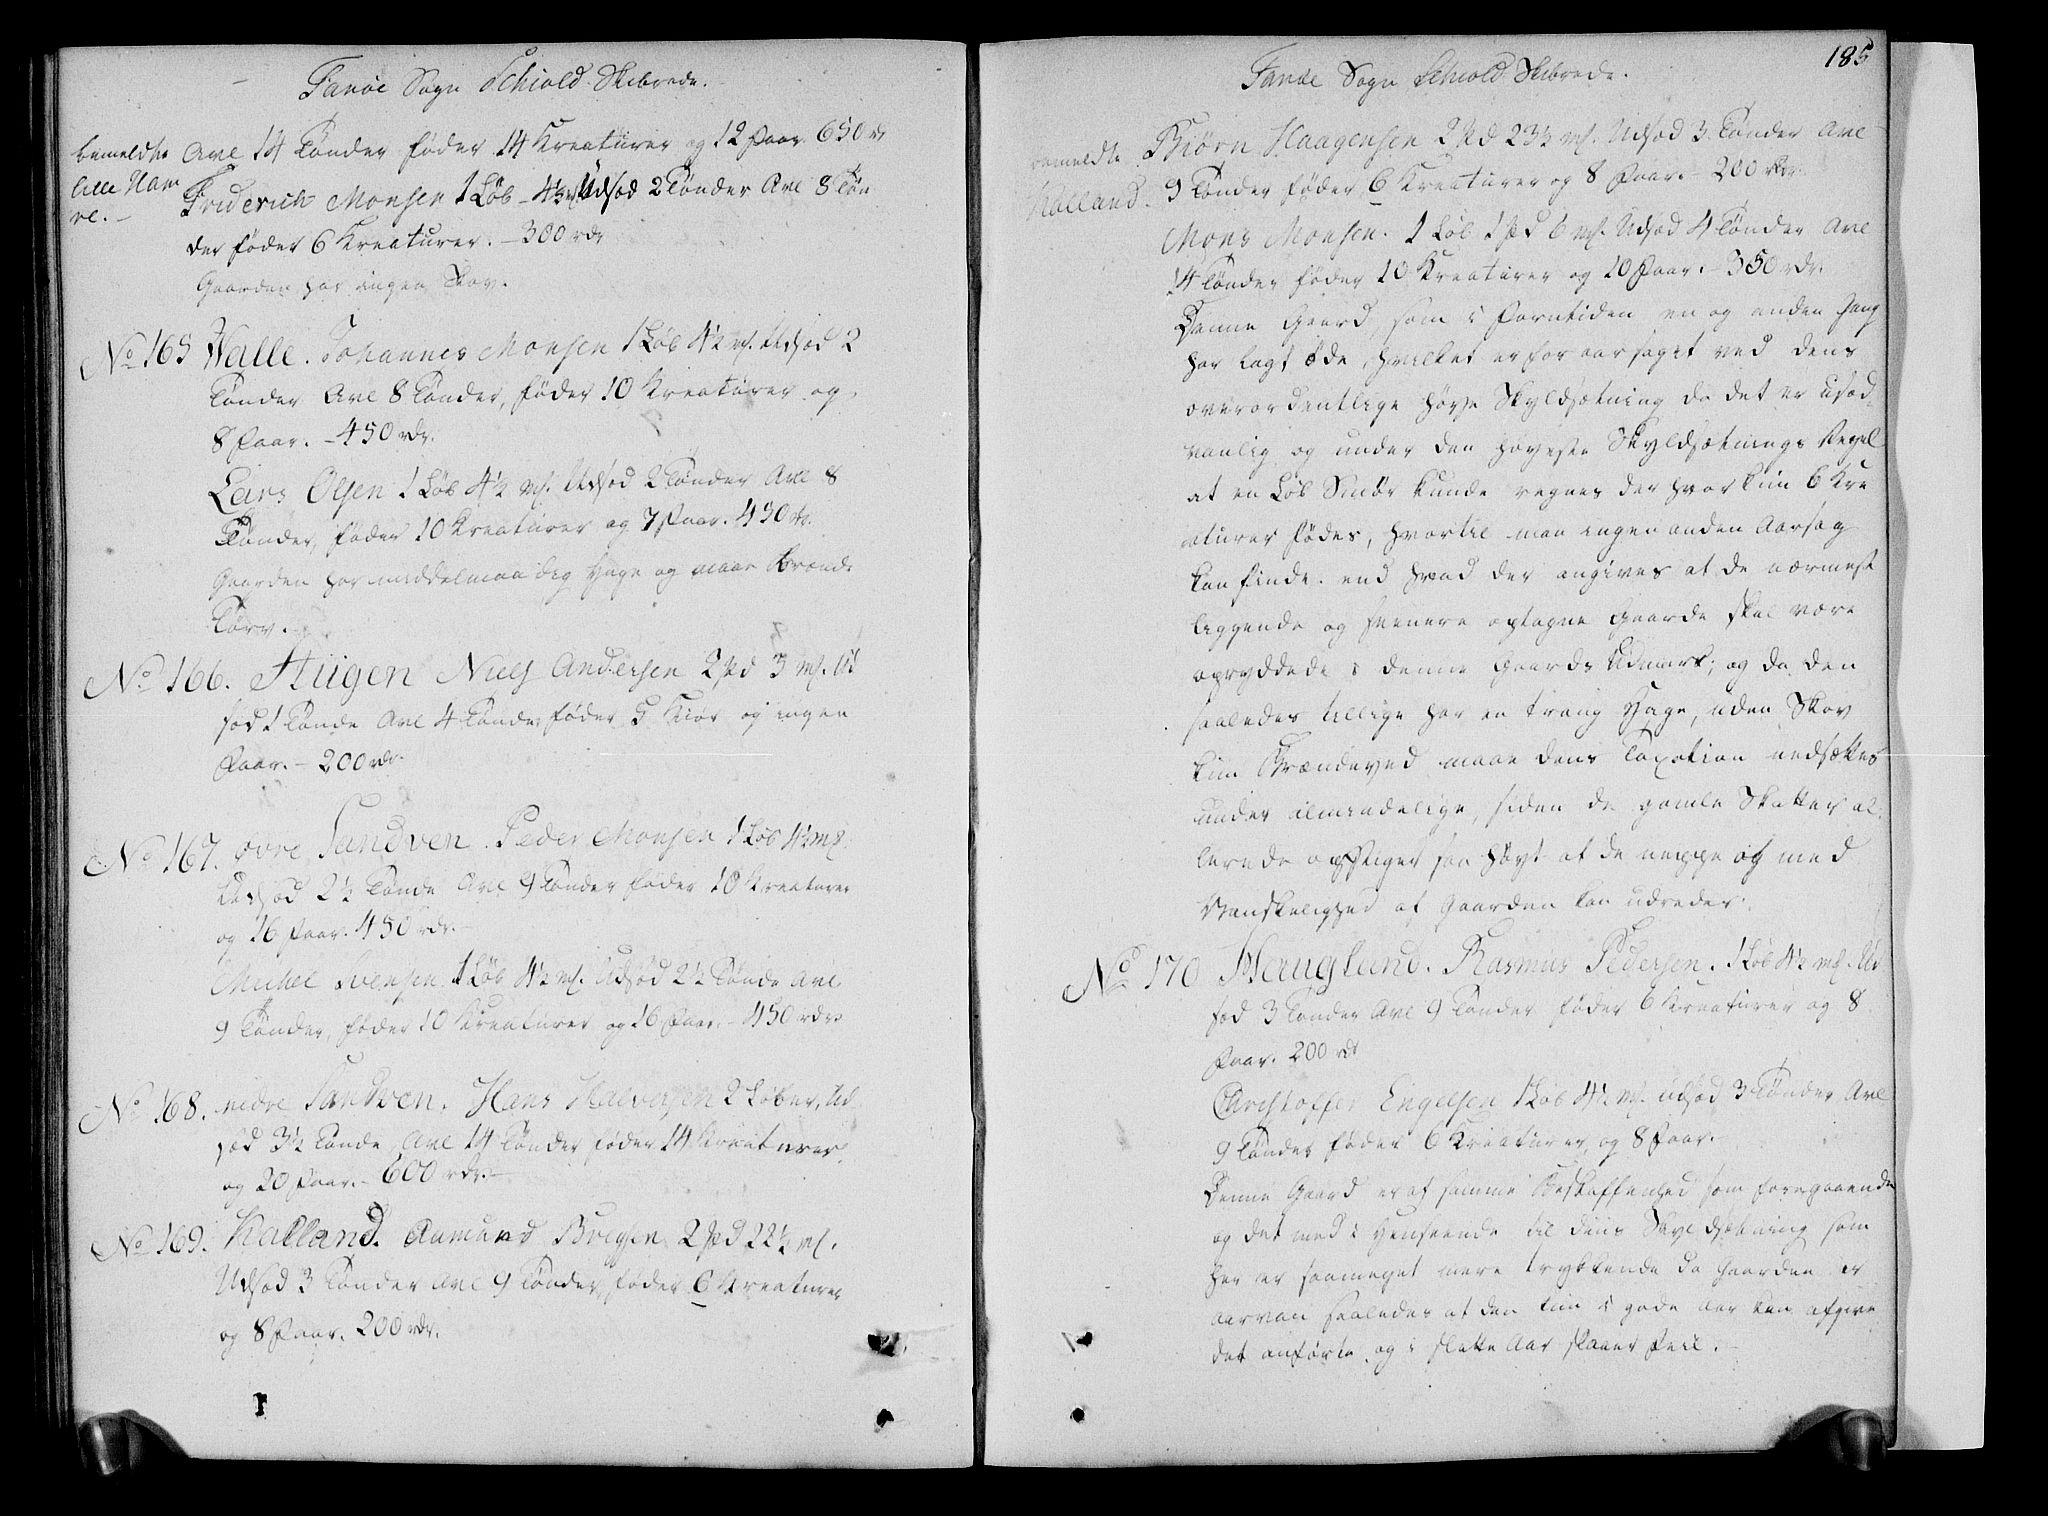 Fanøe Sogn Schiold Skibrede.
bemeldte lille Ham
re. –
Avl 14 Tønder føder 14 Kreaturer og 12 Faar 650 rd
Friderich Monsen 1 Løb – 4½ mk Udsød 2 Tønder Avl 8 Tøn
der føder 6 Kreaturer. – 300 rdr
Gaarden har ingen Skov.
No 165 Walle. Johannes Monsen 1 Løb 4½ mk. Udsød 2
Tønder Avl 8 Tønder, føder 10 Kreaturer og
8 Faar. – 450 rdr.
Lars Olsen 1 Løb 4½ mk. Udsød 2 Tønder Avl 8
Tønder, føder 10 Kreaturer og 7 Faar. 430 rdr.
Gaarden har middelmaadig Hage og maae brænde
Tørv.
No 166. Niels Andersen 2 pd 3 mk. Ud
sød 1 Tønde Avl 4 Tønder føder 5 Kiør og ingen
Faar. – 200 rdr.
No 167. øvre Sandven. Peder Monsen 1 Løb 4½ mk
Udsød 2½ Tønde Avl 9 Tønder føder 10 Kreaturer
og 16 Faar. 450 rdr. –
Michel Svensen 1 Løb 4½ mk. Udsød 2½ Tønde Avl
9 Tønder, føder 10 Kreaturer og 16 Faar. – 450 rdr
No 168. nedre Sandven. Hans Halversen 2 Løber, Ud
sød 3½ Tønde Avl 14 Tønder føder 14 Kreaturer
og 20 Faar. – 600 rdr. –
No 169. Kalland. Aamund 2 pd 22½ mk.
Udsød 3 Tønder Avl 9 Tønder, føder 6 Kreaturer
og 8 Faar. 200 rdr.
185
Fanøe Sogn Schiold Skibrede.
bemeldte
Kalland.
Biørn Haagensen 2 pd 23½ mk. Udsød 3 Tønder Avl
9 Tønder føder 6 Kreaturer og 8 Faar. – 200 rdr.
Mons Monsen. 1 Løb 1 pd 6 mk. Udsød 4 Tønder Avl
14 Tønder føder 10 Kreaturer og 10 Faar. – 350 rdr.
Denne Gaard, som i Forntiden en og anden Gang
har lagt øde, hvilket er foraarsaget ved dens
overordentlige høye Skyldsætning da det er usæd
vanlig og under den høyeste Skyldsætnings Regel
at en Løb Smør kunde regnes der hvor kun 6 Kre
aturer fødes, hvortil man ingen anden Aarsag
kan finde. end hvad der angives at de nærmest
liggende og senere optagne Gaarde skal være
opryddede i denne Gaards Udmark; og da den
saaledes tillige har en trang Hage, uden Skov
kun Brændeved maae dens Taxation nedsættes
under almindelige, siden de gamle Skatter al
lerede opstiger saa høyt at de neppe og med
Vanskelighed af Gaarden kan udredes.
No 170 Haugland. Rasmus Pedersen. 1 Løb 4½ mk. Ud
sød 3 Tønder Avl 9 Tønder føder 6 Kreaturer og 8
Faar. 200 rdr
Christoffer Engelsen 1 Løb 4½ mk. udsød 3 Tønder Avl
9 Tønder føder 6 Kreaturer, og 8 Faar.
Denne Gaard er af samme Beskaffenhed som foregaaende
og det med i Henseende til dens Skyldsætning som
her er saameget mere trykkende da Gaarden er
aarvan saaledes at den kun i gode Aar kan afgive
det anførte og i slette Aar slaaer Feil. –